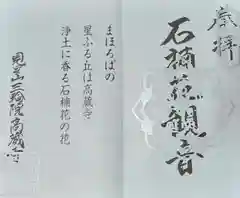 奉拝
石楠花観音
まほろばの
里ふる丘は高蔵寺
浄土に香る石楠花の花
三輪院高蔵寺